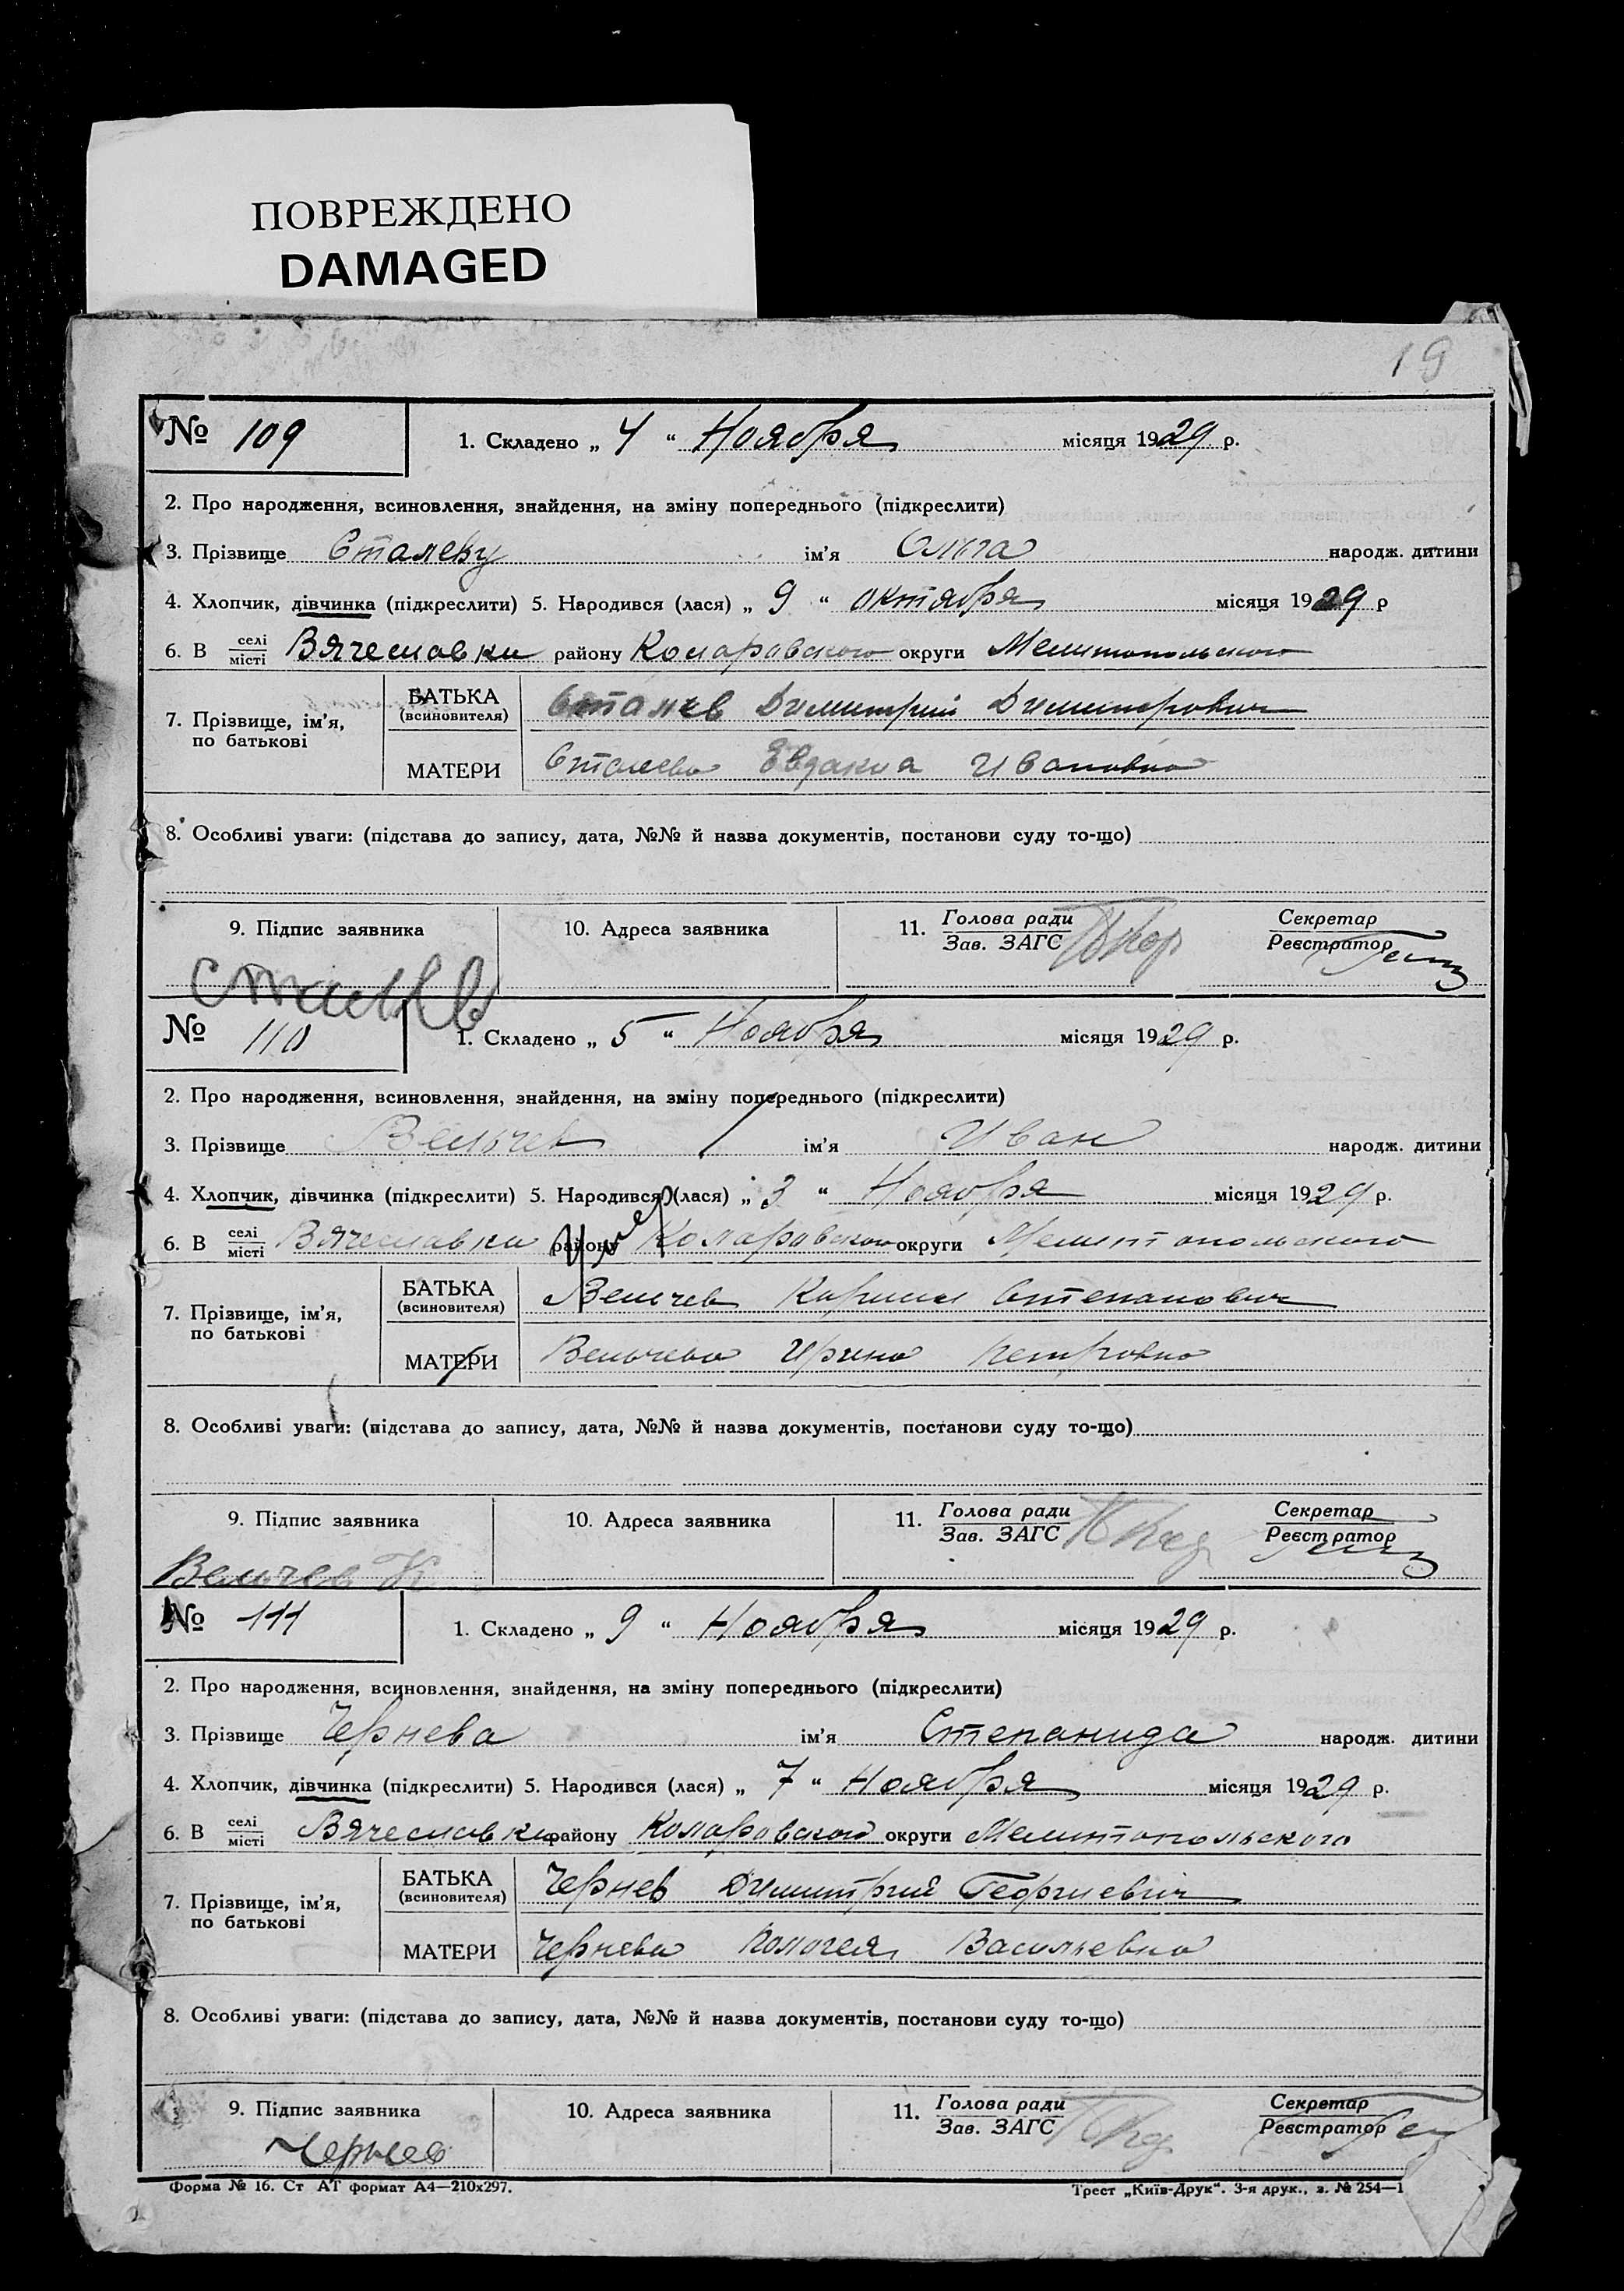 ПОВРЕЖДЕНО
DAMAGED
19
№ 109 1. Складено „ 4 “ Ноября місяця 1929 р.
2. Про народження, всиновлення, знайдення, на зміну попереднього (підкреслити)
3. Прізвище Сталеву ім'я Ольга народж. дитини
4. Хлопчик, дівчинка (підкреслити) 5. Народився (лася) „ 9 “ октября місяця 1929 р
6. В селі місті Вячеславки району Коларовского округи Мелитопольского
7. Прізвище, ім'я, по батькові
БАТЬКА (всиновителя) Сталев Димитрий Димитрович
МАТЕРИ Сталева Евдакия Ивановна
8. Особливі уваги: (підстава до запису, дата, №№ й назва документів, постанови суду то-що)
9. Підпис заявника 10. Адреса заявника 11. Голова ради Зав. ЗАГС Секретар Реєстратор
Сталев
№ 110 1. Складено „ 5 “ Ноября місяця 1929 р.
2. Про народження, всиновлення, знайдення, на зміну попереднього (підкреслити)
3. Прізвище Вельчев ім'я Иван народж. дитини
4. Хлопчик, дівчинка (підкреслити) 5. Народився (лася) „ 3 “ Ноября місяця 1929 р.
6. В селі місті Вячеславки району Коларовского округи Мелитопольского
7. Прізвище, ім'я, по батькові
БАТЬКА (всиновителя) Вельчев Кирилл Степанович
МАТЕРИ Вельчева Ирина Петровна
8. Особливі уваги: (підстава до запису, дата, №№ й назва документів, постанови суду то-що)
9. Підпис заявника 10. Адреса заявника 11. Голова ради Зав. ЗАГС Секретар Реєстратор
Вельчев К
№ 111 1. Складено „ 9 “ Ноября місяця 1929 р.
2. Про народження, всиновлення, знайдення, на зміну попереднього (підкреслити)
3. Прізвище Чернева ім'я Степанида народж. дитини
4. Хлопчик, дівчинка (підкреслити) 5. Народився (лася) „ 7 “ Ноября місяця 1929 р.
6. В селі місті Вячеславки району Коларовской округи Мелитопольского
7. Прізвище, ім'я, по батькові
БАТЬКА (всиновителя) Чернев Димитрий Георгиевич
МАТЕРИ Чернева Васильевна
8. Особливі уваги: (підстава до запису, дата, №№ й назва документів, постанови суду то-що)
9. Підпис заявника 10. Адреса заявника 11. Голова ради Зав. ЗАГС Секретар Реєстратор
Чернев
Форма № 16. Ст АТ формат А4—210х297. Трест „Київ-Друк“. 3-я друк., з. № 254—1